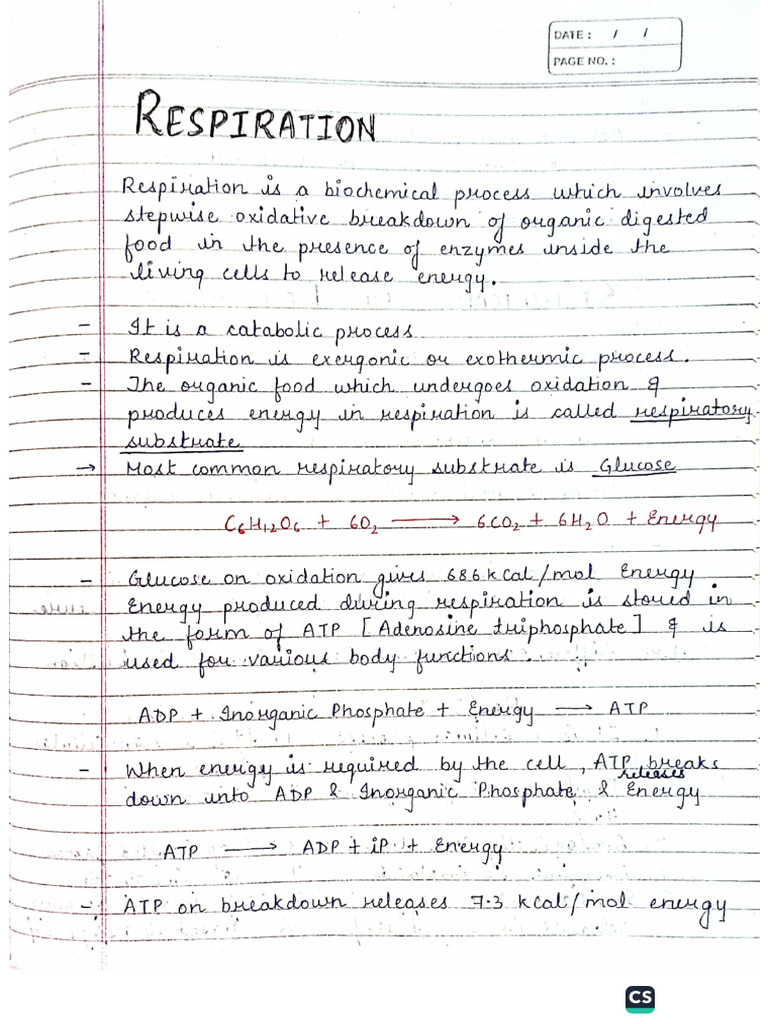 DATE: / /
PAGE NO.:
RESPIRATION
Respiration is a biochemical process which involves
stepwise oxidative breakdown of organic digested
food in the presence of enzymes inside the
living cells to release energy.
- It is a catabolic process
- Respiration is exergonic or exothermic process.
- The organic food which undergoes oxidation &
produces energy in respiration is called respiratory
substrate
→ Most common respiratory substrate is Glucose
C₆H₁₂O₆ + 6O₂ → 6CO₂ + 6H₂O + Energy
- Glucose on oxidation gives 686 kCal/mol Energy
Energy produced during respiration is stored in
the form of ATP [Adenosine triphosphate] & is
used for various body functions.
ADP + Inorganic Phosphate + Energy → ATP
- When energy is required by the cell, ATP breaks
down into ADP & Inorganic Phosphate & releases Energy
ATP → ADP + iP + Energy
- ATP on breakdown releases 7.3 kcal/mol energy
CS